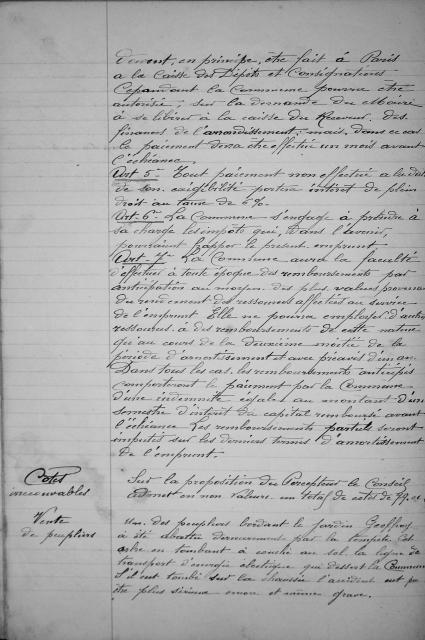 devront, en principe, être fait à Paris
à la Caisse des Dépôts et Consignations
Cependant la Commune pourra être
autorisée, sur la demande du Maire
à se libérer à la caisse du Receveur des
finances de l'arrondissement; mais, dans ce cas
le paiement devra être effectué un mois avant
l'échéance.
Art 5e Tout paiement non effectué à la date
de son exigibilité portera intérêt de plein
droit au taux de 6 %.
Art. 6e La Commune s'engage à prendre à
sa charge les impôts qui, dans l'avenir,
pourraient frapper le présent emprunt
Art. 7e La Commune aura la faculté
d'effectuer à toute époque des remboursements par
anticipation au moyen des plus values provenant
du rendement des ressources affectées au service
de l'emprunt. Elle ne pourra employer d'autres
ressources à des remboursements de cette nature
qu'au cours de la deuxième moitié de la
période d'amortissement et avec préavis d'un an.
Dans tous les cas, les remboursements anticipés
comporteront le paiement par la Commune
d'une indemnité égale au montant d'un
semestre d'intérêt du capital remboursé avant
l'échéance. Les remboursements partiels seront
imputés sur les derniers termes d'amortissement
de l'emprunt.
Cotes
irrecouvrables
Sur la proposition du Percepteur le Conseil
admet en non valeurs un total de cotes de
Vente
de peupliers
Un des peupliers bordant le jardin Geoffroy
a été abattu dernièrement par la tempête. Cet
arbre en tombant a couché au sol la ligne de
transport d'énergie électrique qui dessert la Commune
S'il eut tombé sur la chaussée l'accident eut pu
être plus sérieux encore et même grave.